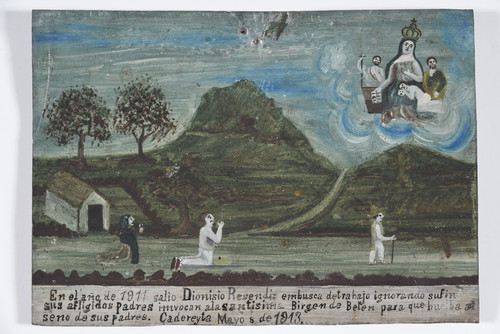 En el año de 1911 salio Dionisio Resendiz embusca detrabajo ignorando sufin
sus afligidos padres invocan ala santisima Birgen de Belen para que buelba al
seno de sus padres. Cadereyta Mayo 8 de 1913.